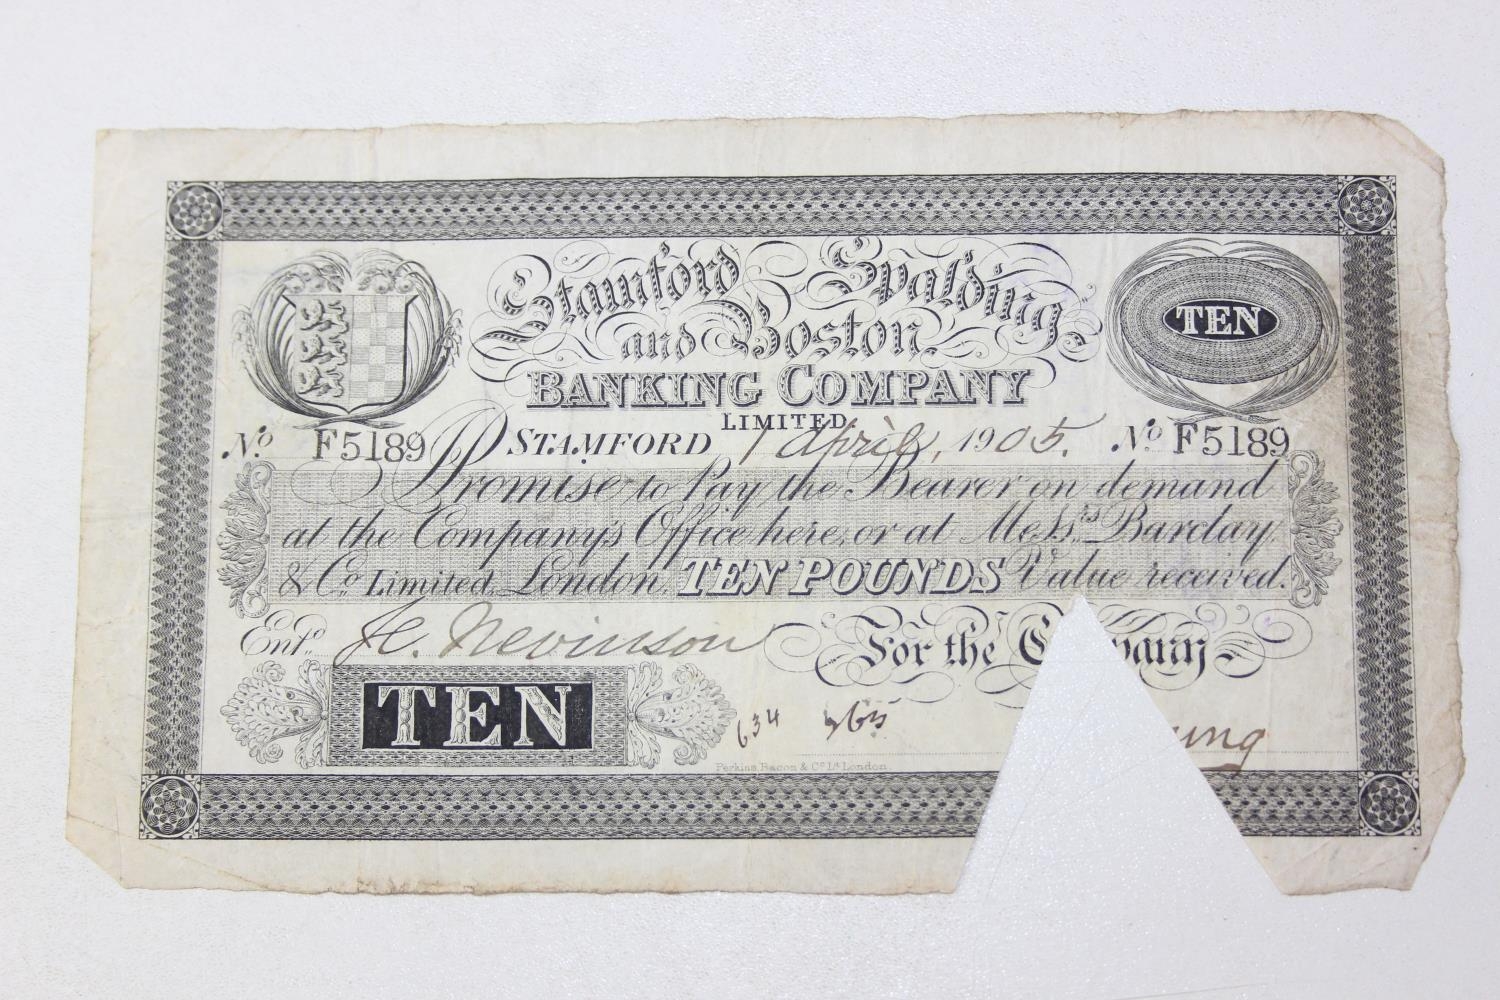 Stamford Spalding
and Boston
BANKING COMPANY
LIMITED
TEN
No. F5189 STAMFORD 1 April, 1905. No. F5189
Promise to Pay the Bearer on demand
at the Company's Office here, or at Messrs. Barclay
& Co. Limited, London, TEN POUNDS Value received.
Entd. Nevinson
For the Company
TEN
634
Perkins, Bacon & Co. Ld. London.